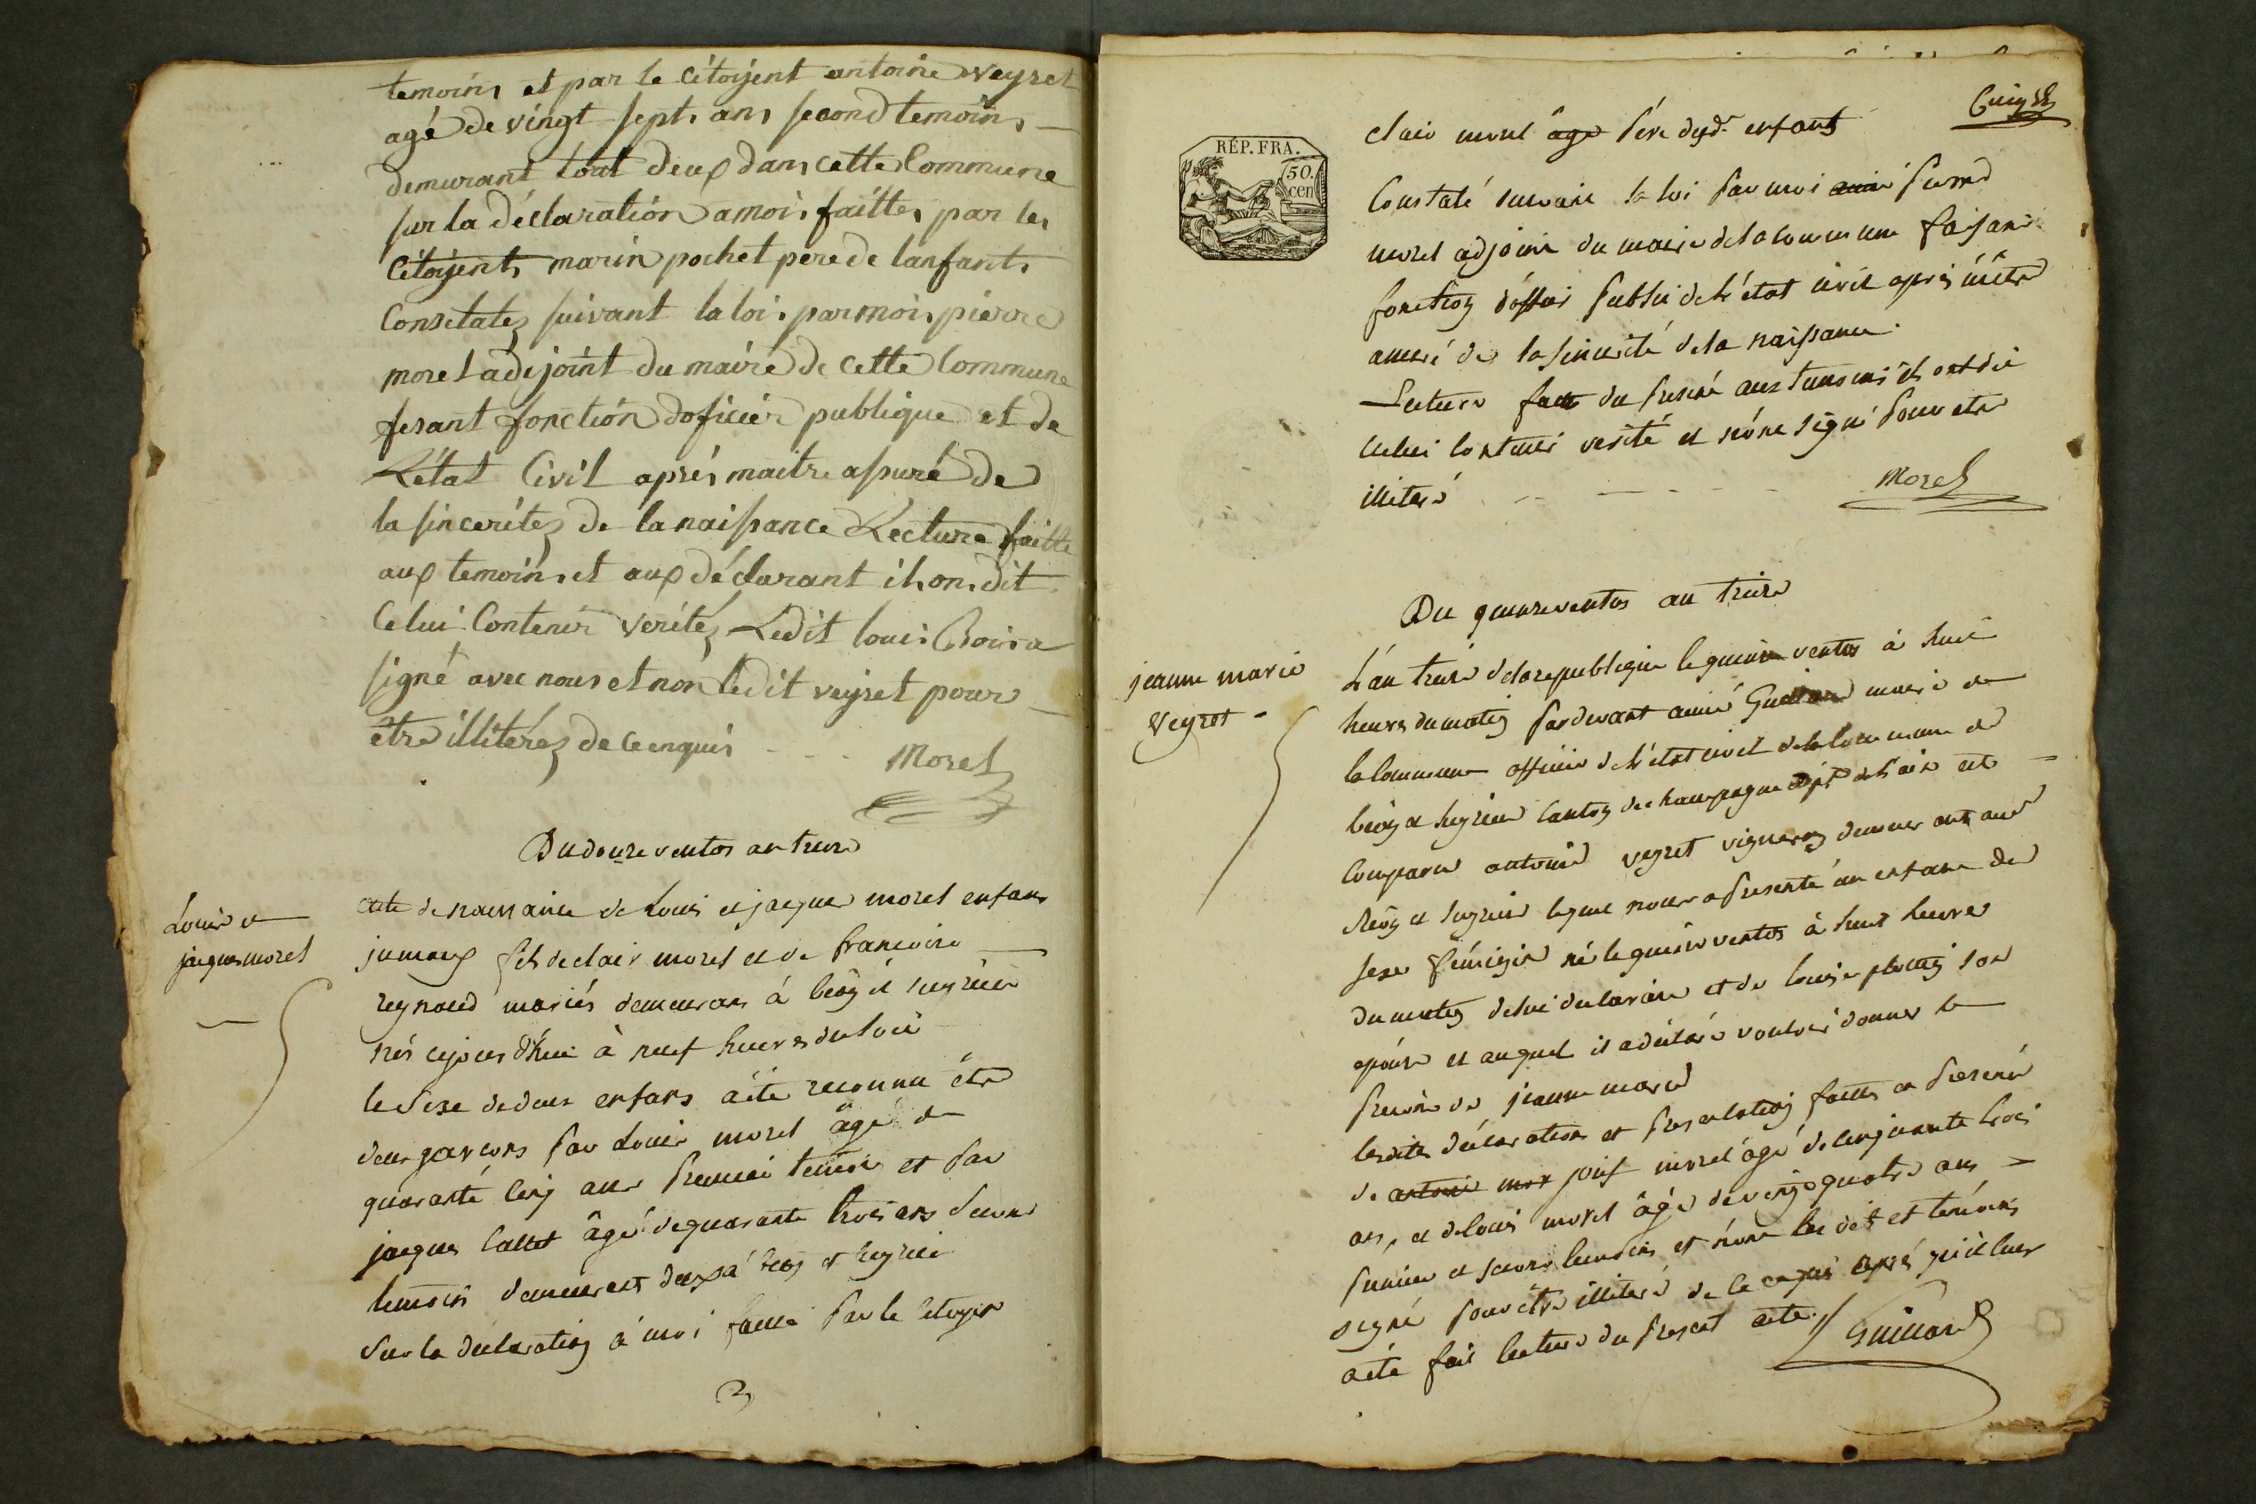 temoins et par le Citoyent antoine veyret
agé de vingt sept ans second temoins
demurant tout deux dans cette Commune
sur la déclaration a moi faitte par les
Citoyents marin pochet pere de lanfants
Consetatez suivant la loi par moi pierre
morel adejoint du maire de cette Commune
fesant fonction doficier publique et de
L'état Civil aprés maitre assuré de
la sinceritez de la naissance Lecture faitte
aux temoins et aux déclarant ils on dit
Celui Contenir veritez Ledit loui Boira
signé avec nous et non ledit veyret pour
être illiterez de ce enquis
Morel
Du douze ventos an treize
Louis et
jaques morel
acte de naissance de Louis et jacque morel enfans
jumeaux fils de clair morel et de francoise
reynaud mariés demeurans à béon et luyrieu
nés cejourd'hui à neuf heures du soir
le sexe de deux enfans a été reconnu étre
deux garcons par Louis morel âgé de
quarante cinq ans premier temoin et par
jacques Callet âgé de quarante trois ans second
temoin demeurant deux à béon et luyrieu
sur la déclaration à moi faitte par le citoyen
RÉP. FRA.
50.
cen
clair morel âgé père dud. enfant
Constaté suivant la loi par moi pierre
morel adjoint du maire de la commune faisant
fonction d'officier public de l'état civil après m'être
assuré de la sincerité de la naissance.
Lecture faite du présent aux temoins ils ont dit
celui contenir verité et n'ont signé pour etre
illiteré
Morel
Du quinze ventos an treize
jeanne marie
Veyret
L'an treize de la republique le quinze ventos à huit
heures du matin pardevant aimé Guilland maire de
la Commune officier de l'état civil de la Commune de
béon et luyrieu canton de champagne dépt de l'ain est
comparu antoine veyret vigneron demeurant aud
Béon et luyrieu lequel nous a présenté un enfant de
sexe féminin né le quinze ventos à huit heures
du matin de lui declarant et de louise son
epouse et auquel il a déclaré vouloir donner le
prenom de jeanne marie
lesdites déclaration et presentation faites en présence
de antoine mor josef morel âgé de cinquante trois
ans, et de louis morel âgé de vingt quatre ans
premier et second temoins et n'ont les dits et temoins
signé pour être illiteré de ce enquis après qu'il leur
a été fait lecture du present acte Guilland